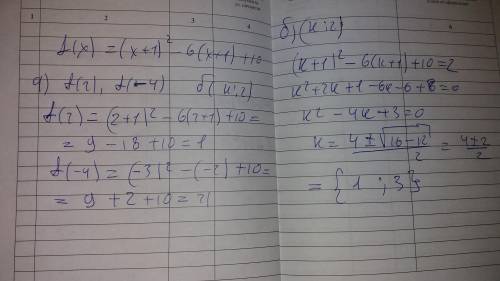 1 2 3 4 5 6
f(x) = (x+1)² - 6(x+1) + 10
а) f(2), f(-4) б(к;2)
f(2) = (2+1)² - 6(2+1) + 10 =
= 9 - 18 + 10 = 1
f(-4) = (-3)² - (-2) + 10 =
= 9 + 2 + 10 = 21
б) (к;2)
(к+1)² - 6(к+1) + 10 = 2
к² + 2к + 1 - 6к - 6 + 8 = 0
к² - 4к + 3 = 0
к = 4 ± √16 - 12 / 2 = 4 ± 2 / 2
= {1 ; 3}